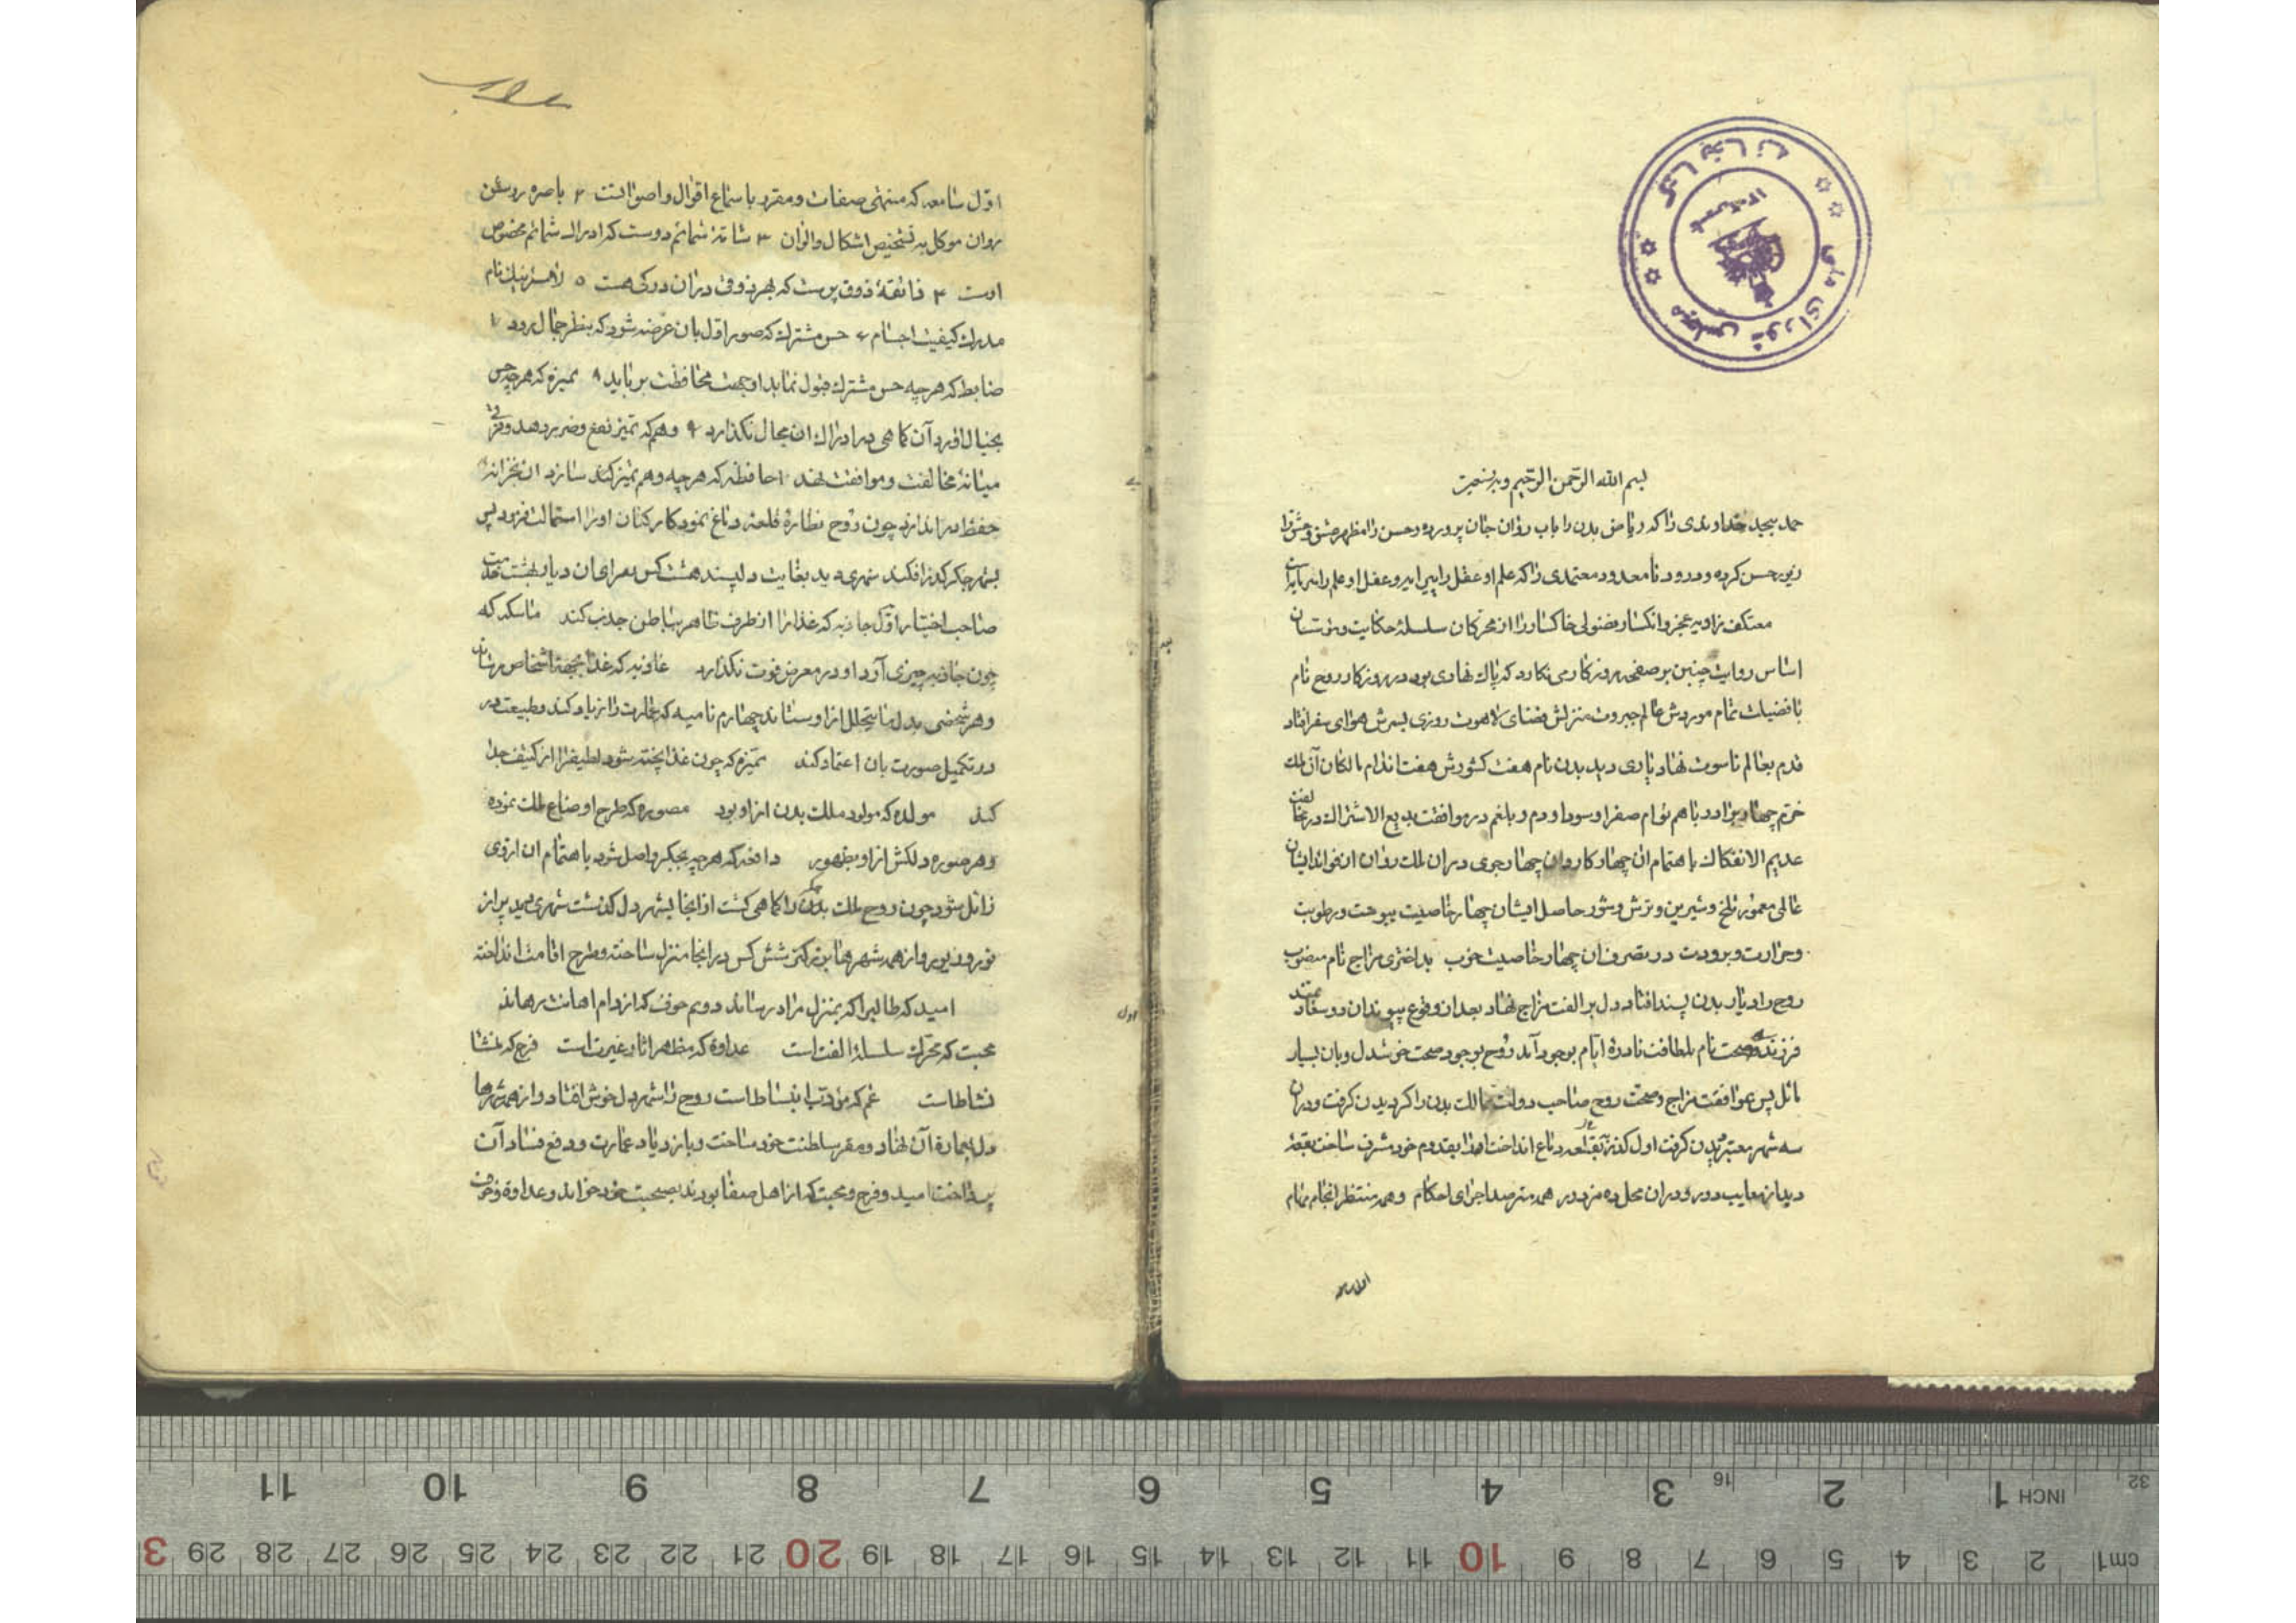 بسم الله الرحمن الرحیم و به نستعین
حمد بیحد خداوندی را که ریاض بدن را باب روان جان پرورده و حسن را مظهر عشق و عشق را
زیور حسن کرده و درود نامعدود معتمدی را که علم او عقل را پیرایه و عقل او علم را سرمایه است
معتکف زاویه عجز و انکسار فضولی خاکسار را از محرکان سلسلهٔ حکایت و موسسان
اساس روایت چنین بر صفحه روزگار می نکارد که پاک نهادی بود در روزکار روح نام
با فضیلت تمام موردش عالم جبروت منزلش فضای لاهوت روزی بسرش هوای سفر افتاد
قدم بعالم ناسوت نهاد دیاری دید بدن نام هفت کشورش هفت اندام مالکان آن ملک
خرم چهار برادر با هم توام صفرا و سودا و دم و بلغم در موافقت بدیع الاشتراک در مخالفت
عدیم الانفکاک باهتمام ان چهار کاروان چهار جوی در ان ملک روان از فواید ایشان
عالمی معمور تلخ و شیرین و ترش و شور حاصل ایشان چهار خاصیت یبوست و رطوبت
و حرارت و برودت در تصرف ان چهار خاصیت خوب بد اختری مزاج نام منسوب
روح را دیار بدن پسند افتاد دل بر الفت مزاج نهاد بعد از وقوع پیوند ان دو سعادتمند
فرزند صحت نام بلطافت نادره ایام بوجود آمد روح بوجود صحت خوشدل و بان بسیار
مائل پس بموافقت مزاج و صحت روح صاحب دولت ممالک بدن را کردیدن کرفت و در ان
سه شهر معتبر دیدن کرفت اول کذر بقلعه دماغ انداخت انرا بقدوم خود مشرف ساخت بقعهٔ
دید از معایب دور و در ان محل ده مزدور همه مترصد اجرای احکام و همه منتظر انجام مهام
اول سامعه که منتهی صفات و مقرر با سماع اقوال و اصواتست ۲ باصره روشن
روان موکل به تشخیص اشکال و الوان ۳ شامّهٔ شمائم دوست که ادراک شمائم مخصوص
اوست ۴ ذائقهٔ ذوق پرست که بهر ذوقی در ان درکی هست ۵ لامسهٔ نیک نام
مدرک کیفیت اجسام ۶ حس مشترک که صور اول بان عرضه شود که بنظر خیال رود ۷
ضابط که هر چه حس مشترک قبول نماید او جهت محافظت برباید ۸ ممیزه که هر چه حس
بخیال اورد آن کاهی در ادراک ان مجال نکذارد ۹ وهم که تمیز نفع و ضرر دهد و فرقی
میانهٔ مخالفت و موافقت نهد ۱۰ حافظه که هر چه وهم تمیز کند سازد ان بخزانهٔ
حفظ در اندازد چون روح نظارهٔ قلعهٔ دماغ نمود کارکنان او را استمالت فزود پس
بشهر جکر کذر افکند شهری دید بغایت دلپسند هشت کس در رای ان دیار بهشت خدمت
صاحب اختیار اول جاذبه که غذا را از طرف ظاهر بباطن جذب کند ماسکه که
چون جاذبه چیزی آرد او در معرض فوت نکذارد غاذیه که غذا بجهة اشخاص رساند
و هر شخصی بدل ما یتحلل از او ستاند چهارم نامیه که عمارت را زیاد کند و طبیعت در
در تکمیل صورت بان اعتماد کند ممیزه که چون غذا پخته شود لطیف را از کثیف جدا
کند مولده که مولود مملکت بدن از او بود مصوره که طرح اوضاع ملک نموده
و هر صوره دلکش از او بظهور دافعه که هر چه بجکر واصل شود باهتمام ان از وی
زائل شود چون روح ملک بدن را کاهی کشت از انجا بشهر دل کذشت شهری دید پر از
نور و زیور و از همه شهرها بزرکتر شش کس در انجا منزل ساخته و طرح اقامت انداخته
امید که طالبرا که بمنزل مراد رساند دویم خوف که از دام اهانت رهاند
محبت که محرک سلسلهٔ الفت است عداوة که مظهر اثار غیرت است فرح که منشا
نشاط است غم که مودب انبساط است روح را شهر دل خوش افتاد و از همه شهرها
دل بعمارة آن نهاد و مقر سلطنت خود ساخت و بازدیاد عمارت و دفع فساد آن
پرداخت امید و فرح و محبت که از اهل صفا بودند بصحبت خود خواند و عداوة و خوف
کتابخانه مجلس شورای ملی
11 10 9 8 7 6 5 4 3 2 1 INCH 16 32
3 29 28 27 26 25 24 23 22 21 20 19 18 17 16 15 14 13 12 11 10 9 8 7 6 5 4 3 2 1 cm